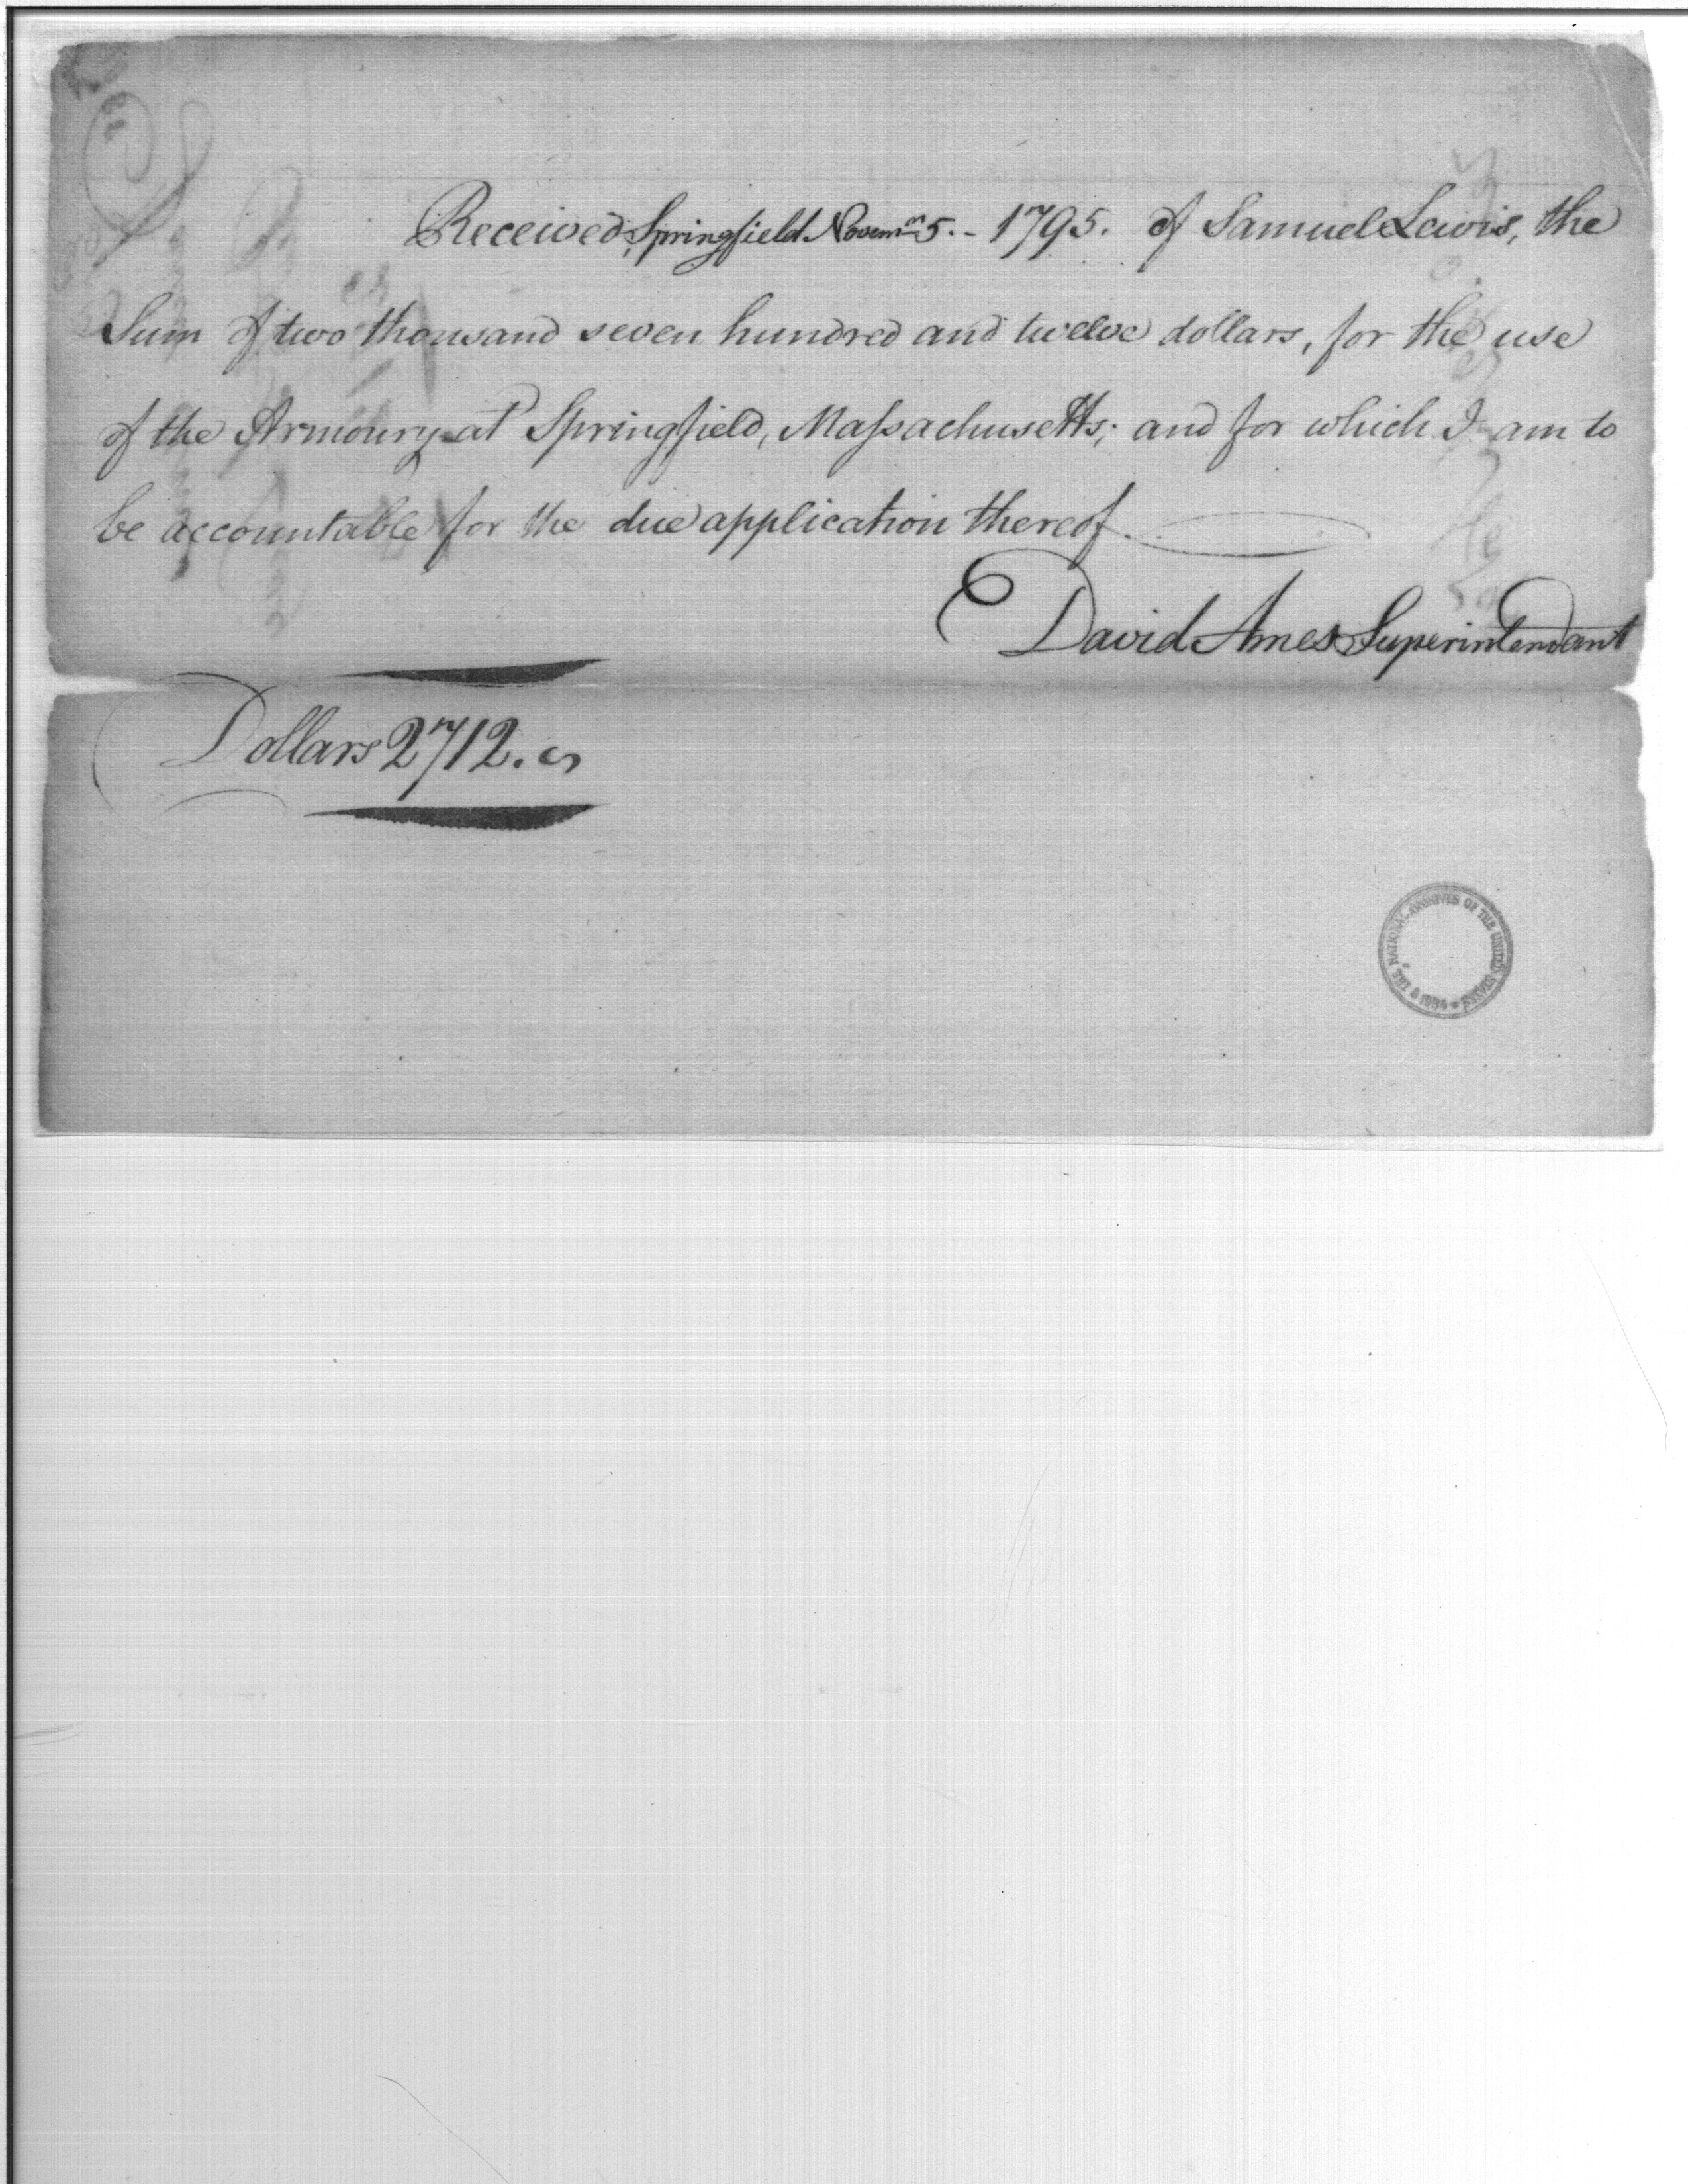 Received, Springfield Novemr 5.- 1795. of Samuel Lewis, the
Sum of two thousand seven hundred and twelve dollars, for the use
of the Armoury at Springfield, Massachusetts; and for which I am to
be accountable for the due application thereof.
David Ames Superintendant
Dollars 2712.
THE NATIONAL ARCHIVES OF THE UNITED STATES * 1934 *